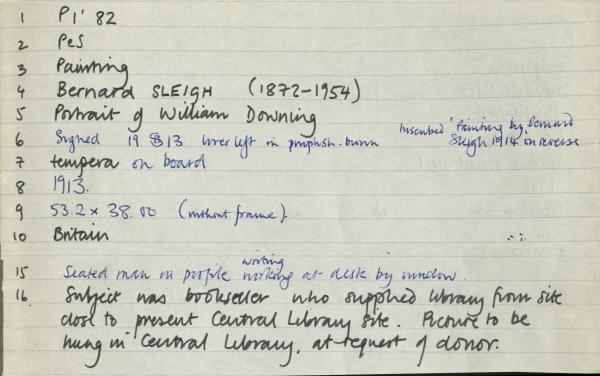 1 P1' 82
2 PeS
3 Painting
4 Bernard SLEIGH (1872-1954)
5 Portrait of William Downing
6 Signed 19 B 13 lower left in purplish-brown Inscribed 'Painting by Bernard Sleigh 1914 on reverse
7 tempera on board
8 1913.
9 53.2 x 38.00 (without frame).
10 Britain
15 Seated man in profile writing working at desk by window.
16. Subject was bookseller who supplied library from site
close to present Central Library site. Picture to be
hung in Central Library, at request of donor.